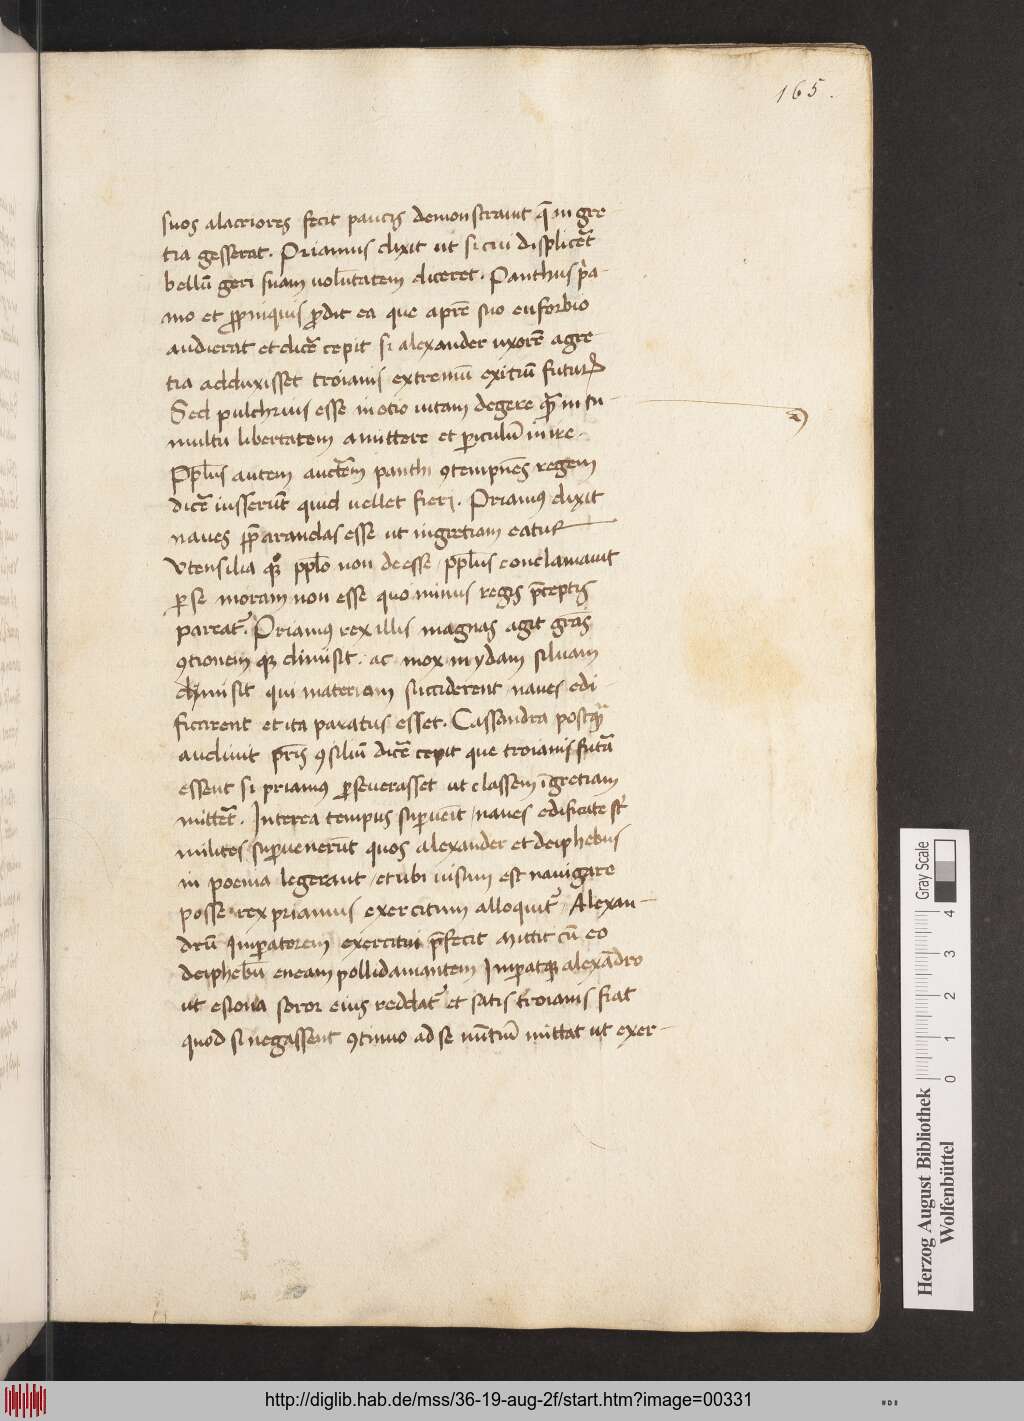 165.
suos alacriores fecit paucis demonstrauit q̄ in gre
tia gesserat. Priamus dixit ut si cui displicet̄
bellū geri suam uolūtatem diceret. Panthus p̄a-
mo et ꝓpinquis ꝓdit ea que a pr̄e suo euforbio
audierat et dicē cepit si alexander uxorē agre
tia adduxisset troianis extremū exitiū futuꝝ
Sed pulchrius esse in otio uitam degere qm̄ in tu-
multu libertatem amittere et ꝑiculū inire.
Pplūs autem auctēm panthi ꝯtempnēs regem
dicē iusserūt quid uellet fieri. Priamus dixit
naues pp̄arandas esse ut in gretiam eatur
Vtensilia qꝫ pplo non deesse / pplūs conclamauit
ꝑ se moram non esse quo minus regis p̄ceptis
pareat᷑. Priamus rex illis magnas agit grās
ꝯtionem qꝫ dimisit. ac mox in ydam siluam
dimisit qui materiem succiderent naues edi-
ficarent et ita paratus esset. Cassandra postqm̄
audiuit pris̄ ꝯsiliū dicē cepit que troianis futā
essent si priamus ꝑseuerasset ut classem ī gretiam
mittet̄. Interea tempus suꝑuēit / naues edificate st̄
milites suꝑuenerūt quos alexander et deiphebus
in poenia legerant / et ubi uisum est nauigare
posse rex priamus exercitum alloquit᷑ / Alexan-
drū Imꝑatorem exercitui p̄fecit Mittit cū eo
deiphebū eneam pollidamantem Imꝑatqꝫ alexādro
ut esiona soror eius reddat᷑ et satis troianis fiat
quod si negassent ꝯtinuo ad se nūtiū mittat ut exer-
Herzog August Bibliothek
Wolfenbüttel
0 1 2 3 4
Gray Scale
http://diglib.hab.de/mss/36-19-aug-2f/start.htm?image=00331